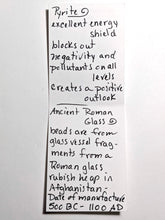 Pyrite
excellent energy
shield
blocks out
negativity and
pollutants on all
levels
creates a positive
outlook
Ancient Roman
Glass
beads are from
glass vessel frag-
ments from a
Roman glass
rubish heap in
Afghanistan.
Date of manufacture
BC - 1100 AD